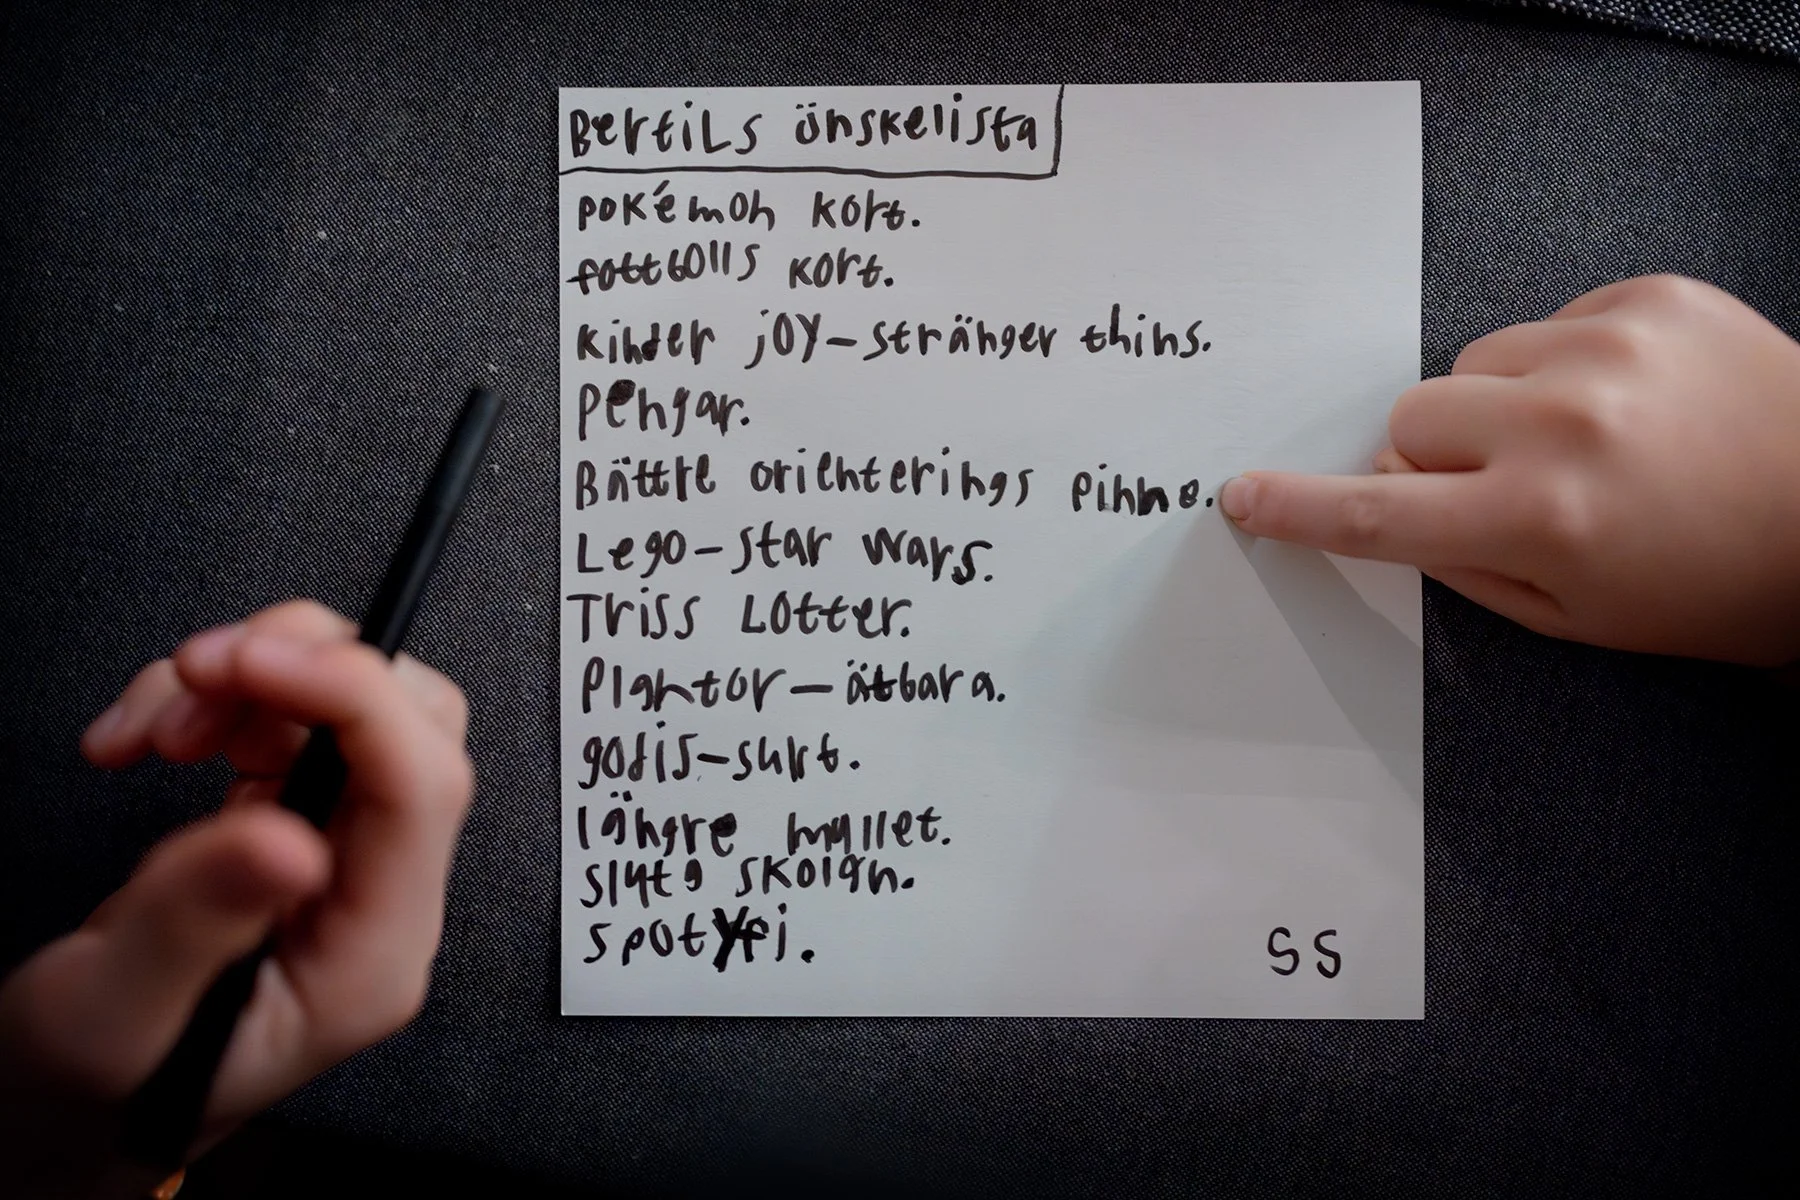 Bertils önskelista
pokémon kort.
fottbolls kort.
kinder joy-stränger thins.
Pengar.
Bättre orienterings pinne.
Lego-star wars.
Triss Lotter.
Plantor-ätbara.
godis-surt.
längre myllet.
sluta skolan.
spotyfi.
SS